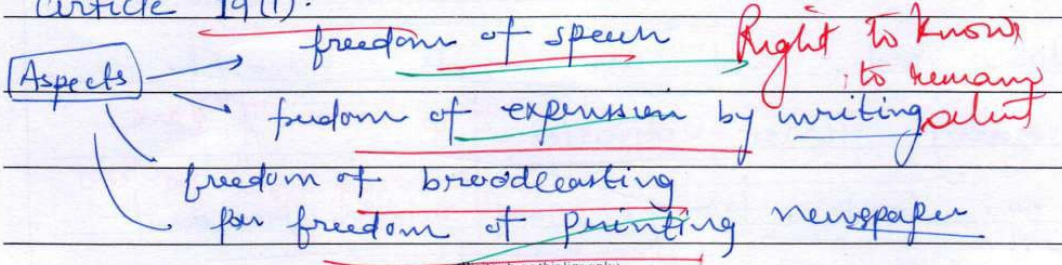 Article 19(1).
freedom of speech Right to know
Aspects to remain
freedom of expression by writing silent
freedom of broadcasting
for freedom of printing newspaper